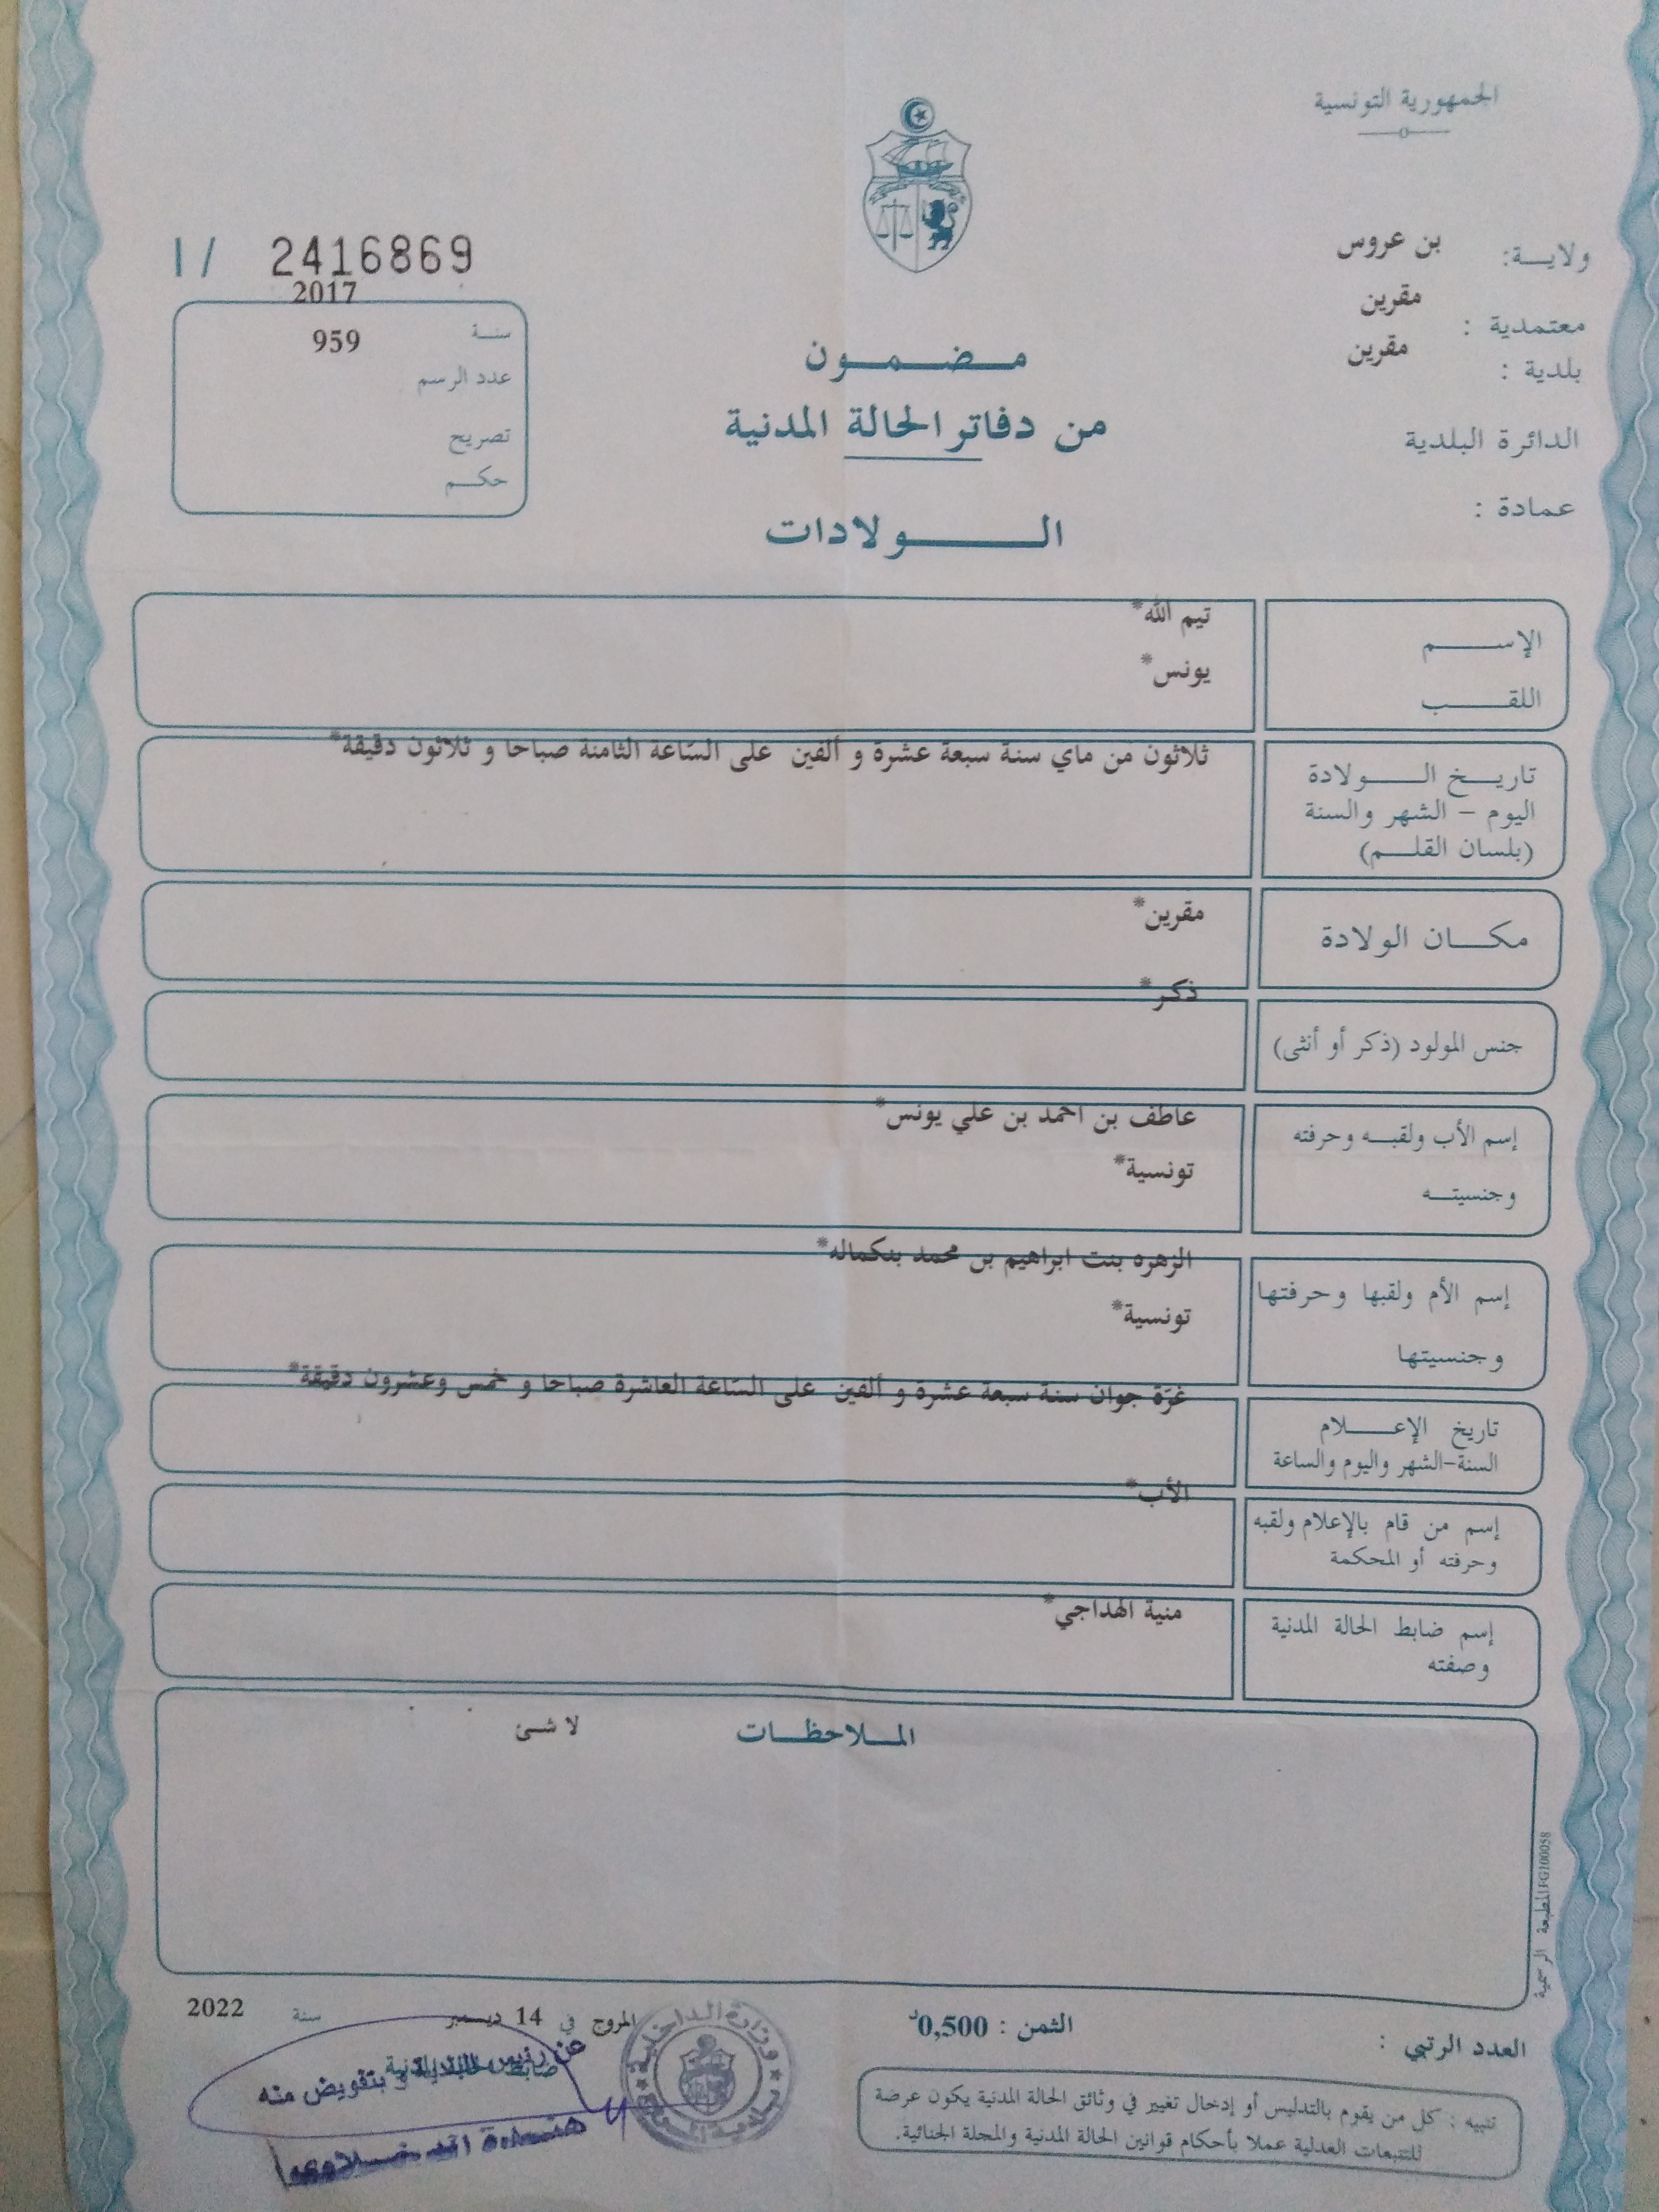 الجمهورية التونسية
ولايـــة: بن عروس
معتمدية : مقرين
بلدية : مقرين
الدائرة البلدية
عمادة :
1/ 2416869
2017
سنــة
959
عدد الرسم
تصريح
حكــم
مـضـمـون
من دفاتر الحالة المدنية
الـــولادات
الإســـــم
تيم الله*
اللقــــب
يونس*
تاريــخ الـــولادة
اليوم - الشهر والسنة
(بلسان القلــم)
ثلاثون من ماي سنة سبعة عشرة و ألفين على الساعة الثامنة صباحا و ثلاثون دقيقة*
مكــان الولادة
مقرين*
جنس المولود (ذكر أو أنثى)
ذكر*
إسم الأب ولقبــه وحرفته
وجنسيتــه
عاطف بن احمد بن علي يونس*
تونسية*
إسم الأم ولقبها وحرفتها
وجنسيتها
الزهره بنت ابراهيم بن محمد بنكماله*
تونسية*
تاريخ الإعــــلام
السنة-الشهر واليوم والساعة
غرّة جوان سنة سبعة عشرة و ألفين على الساعة العاشرة صباحا و خمس وعشرون دقيقة*
إسم من قام بالإعلام ولقبه
وحرفته أو المحكمة
الأب*
إسم ضابط الحالة المدنية
وصفته
منية الهداجي*
المــلاحظــات
لا شئ
المطبعة الرسمية IFG100058
العدد الرتبي :
الثمن : 0,500د
المروج في 14 ديسمبر سنة 2022
عن رئيس البلدية و بتفويض منه
تنبيه : كل من يقوم بالتدليس أو إدخال تغيير في وثائق الحالة المدنية يكون عرضة
للتتبعات العدلية عملا بأحكام قوانين الحالة المدنية والمجلة الجنائية.